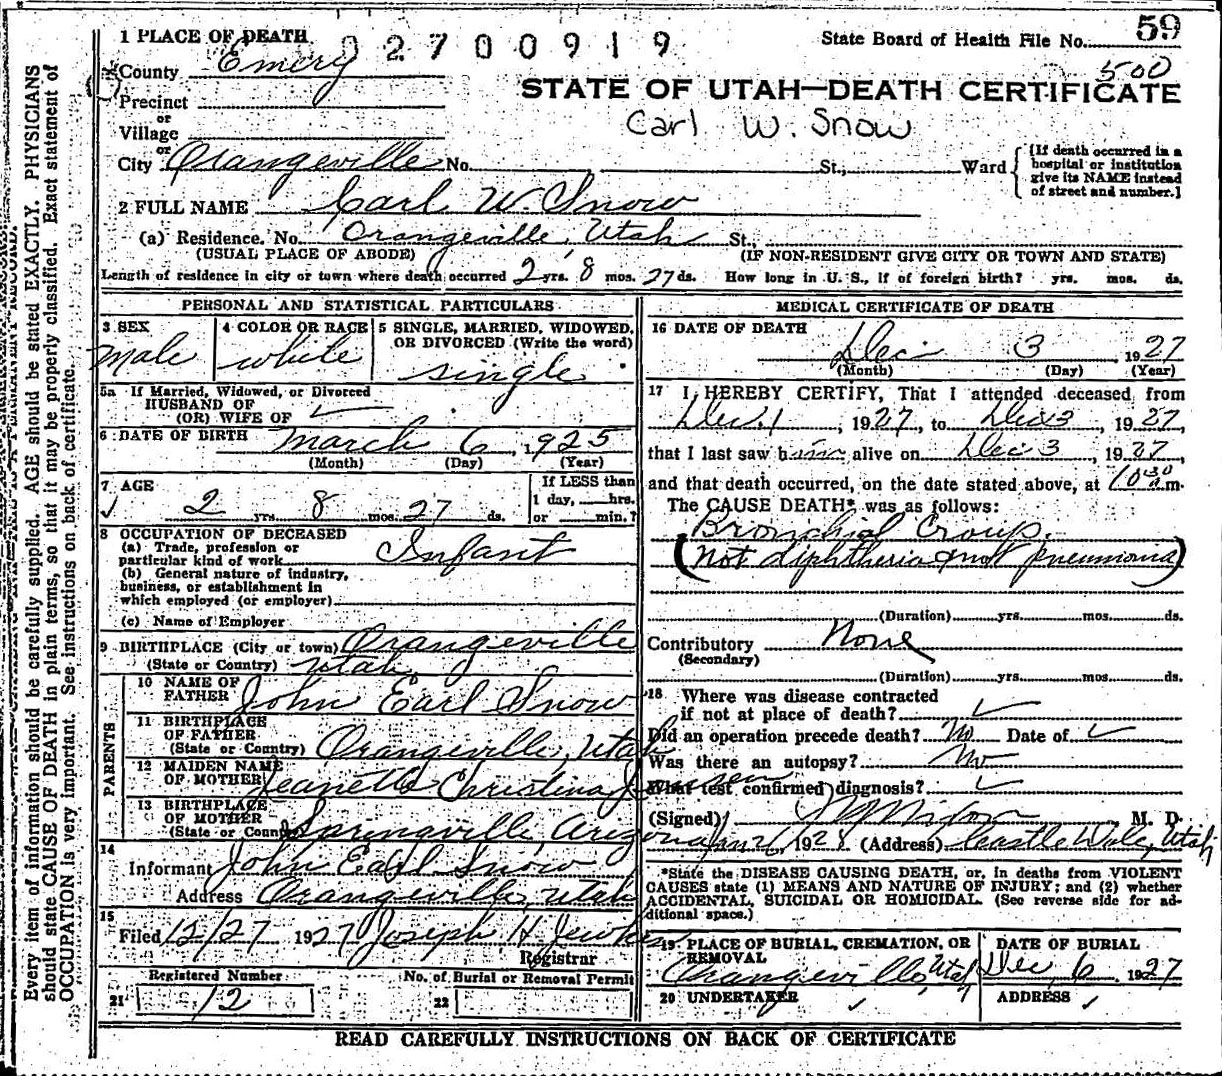 1 PLACE OF DEATH
02700919
State Board of Health File No. 59
County Emery
500
STATE OF UTAH—DEATH CERTIFICATE
Precinct
or
Village
Carl W. Snow
or
City Orangeville No. St., Ward
[If death occurred in a
hospital or institution
give its NAME instead
of street and number.]
2 FULL NAME Carl W. Snow
(a) Residence. No. Orangeville, Utah St.,
(USUAL PLACE OF ABODE) (IF NON-RESIDENT GIVE CITY OR TOWN AND STATE)
Length of residence in city or town where death occurred 2 yrs. 8 mos. 27 ds. How long in U. S., if of foreign birth? yrs. mos. ds.
PERSONAL AND STATISTICAL PARTICULARS
3 SEX
male
4 COLOR OR RACE
white
5 SINGLE, MARRIED, WIDOWED,
OR DIVORCED (Write the word)
single
5a If Married, Widowed, or Divorced
HUSBAND OF
(OR) WIFE OF
6 DATE OF BIRTH March 6, 1925
(Month) (Day) (Year)
7 AGE
2 yrs. 8 mos. 27 ds.
If LESS than
1 day, hrs.
or min.?
8 OCCUPATION OF DECEASED
(a) Trade, profession or
particular kind of work Infant
(b) General nature of industry,
business, or establishment in
which employed (or employer)
(c) Name of Employer
9 BIRTHPLACE (City or town) Orangeville
(State or Country) Utah
PARENTS
10 NAME OF
FATHER John Earl Snow
11 BIRTHPLACE
OF FATHER
(State or Country) Orangeville, Utah
12 MAIDEN NAME
OF MOTHER Jeanette Christina Jensen
13 BIRTHPLACE
OF MOTHER
(State or Country) Springville, Arizona
14
Informant John Earl Snow
Address Orangeville, Utah
15
Filed 12/27 1927 Joseph H. Jewkes
Registrar
Registered Number No. of Burial or Removal Permit
21 12 22
MEDICAL CERTIFICATE OF DEATH
16 DATE OF DEATH
Dec 3, 1927
(Month) (Day) (Year)
17 I HEREBY CERTIFY, That I attended deceased from
Dec. 1, 1927, to Dec 3, 1927,
that I last saw him alive on Dec 3, 1927,
and that death occurred, on the date stated above, at 10 30 a.m.
The CAUSE DEATH* was as follows:
Bronchial Croup.
(Not diphtheria & not pneumonia)
(Duration) yrs. mos. ds.
Contributory None
(Secondary)
(Duration) yrs. mos. ds.
18 Where was disease contracted
if not at place of death?
Did an operation precede death? No Date of
Was there an autopsy? No
What test confirmed diagnosis?
(Signed) Nixon, M. D.
Jan 26, 1928 (Address) Castle Dale, Utah
*State the DISEASE CAUSING DEATH, or, in deaths from VIOLENT
CAUSES state (1) MEANS AND NATURE OF INJURY; and (2) whether
ACCIDENTAL, SUICIDAL OR HOMICIDAL. (See reverse side for ad-
ditional space.)
19 PLACE OF BURIAL, CREMATION, OR
REMOVAL
Orangeville, Utah
DATE OF BURIAL
Dec 6 1927
20 UNDERTAKER
ADDRESS
READ CAREFULLY INSTRUCTIONS ON BACK OF CERTIFICATE
Every item of information should be carefully supplied. AGE should be stated EXACTLY. PHYSICIANS
should state CAUSE OF DEATH in plain terms, so that it may be properly classified. Exact statement of
OCCUPATION is very important. See instructions on back of certificate.